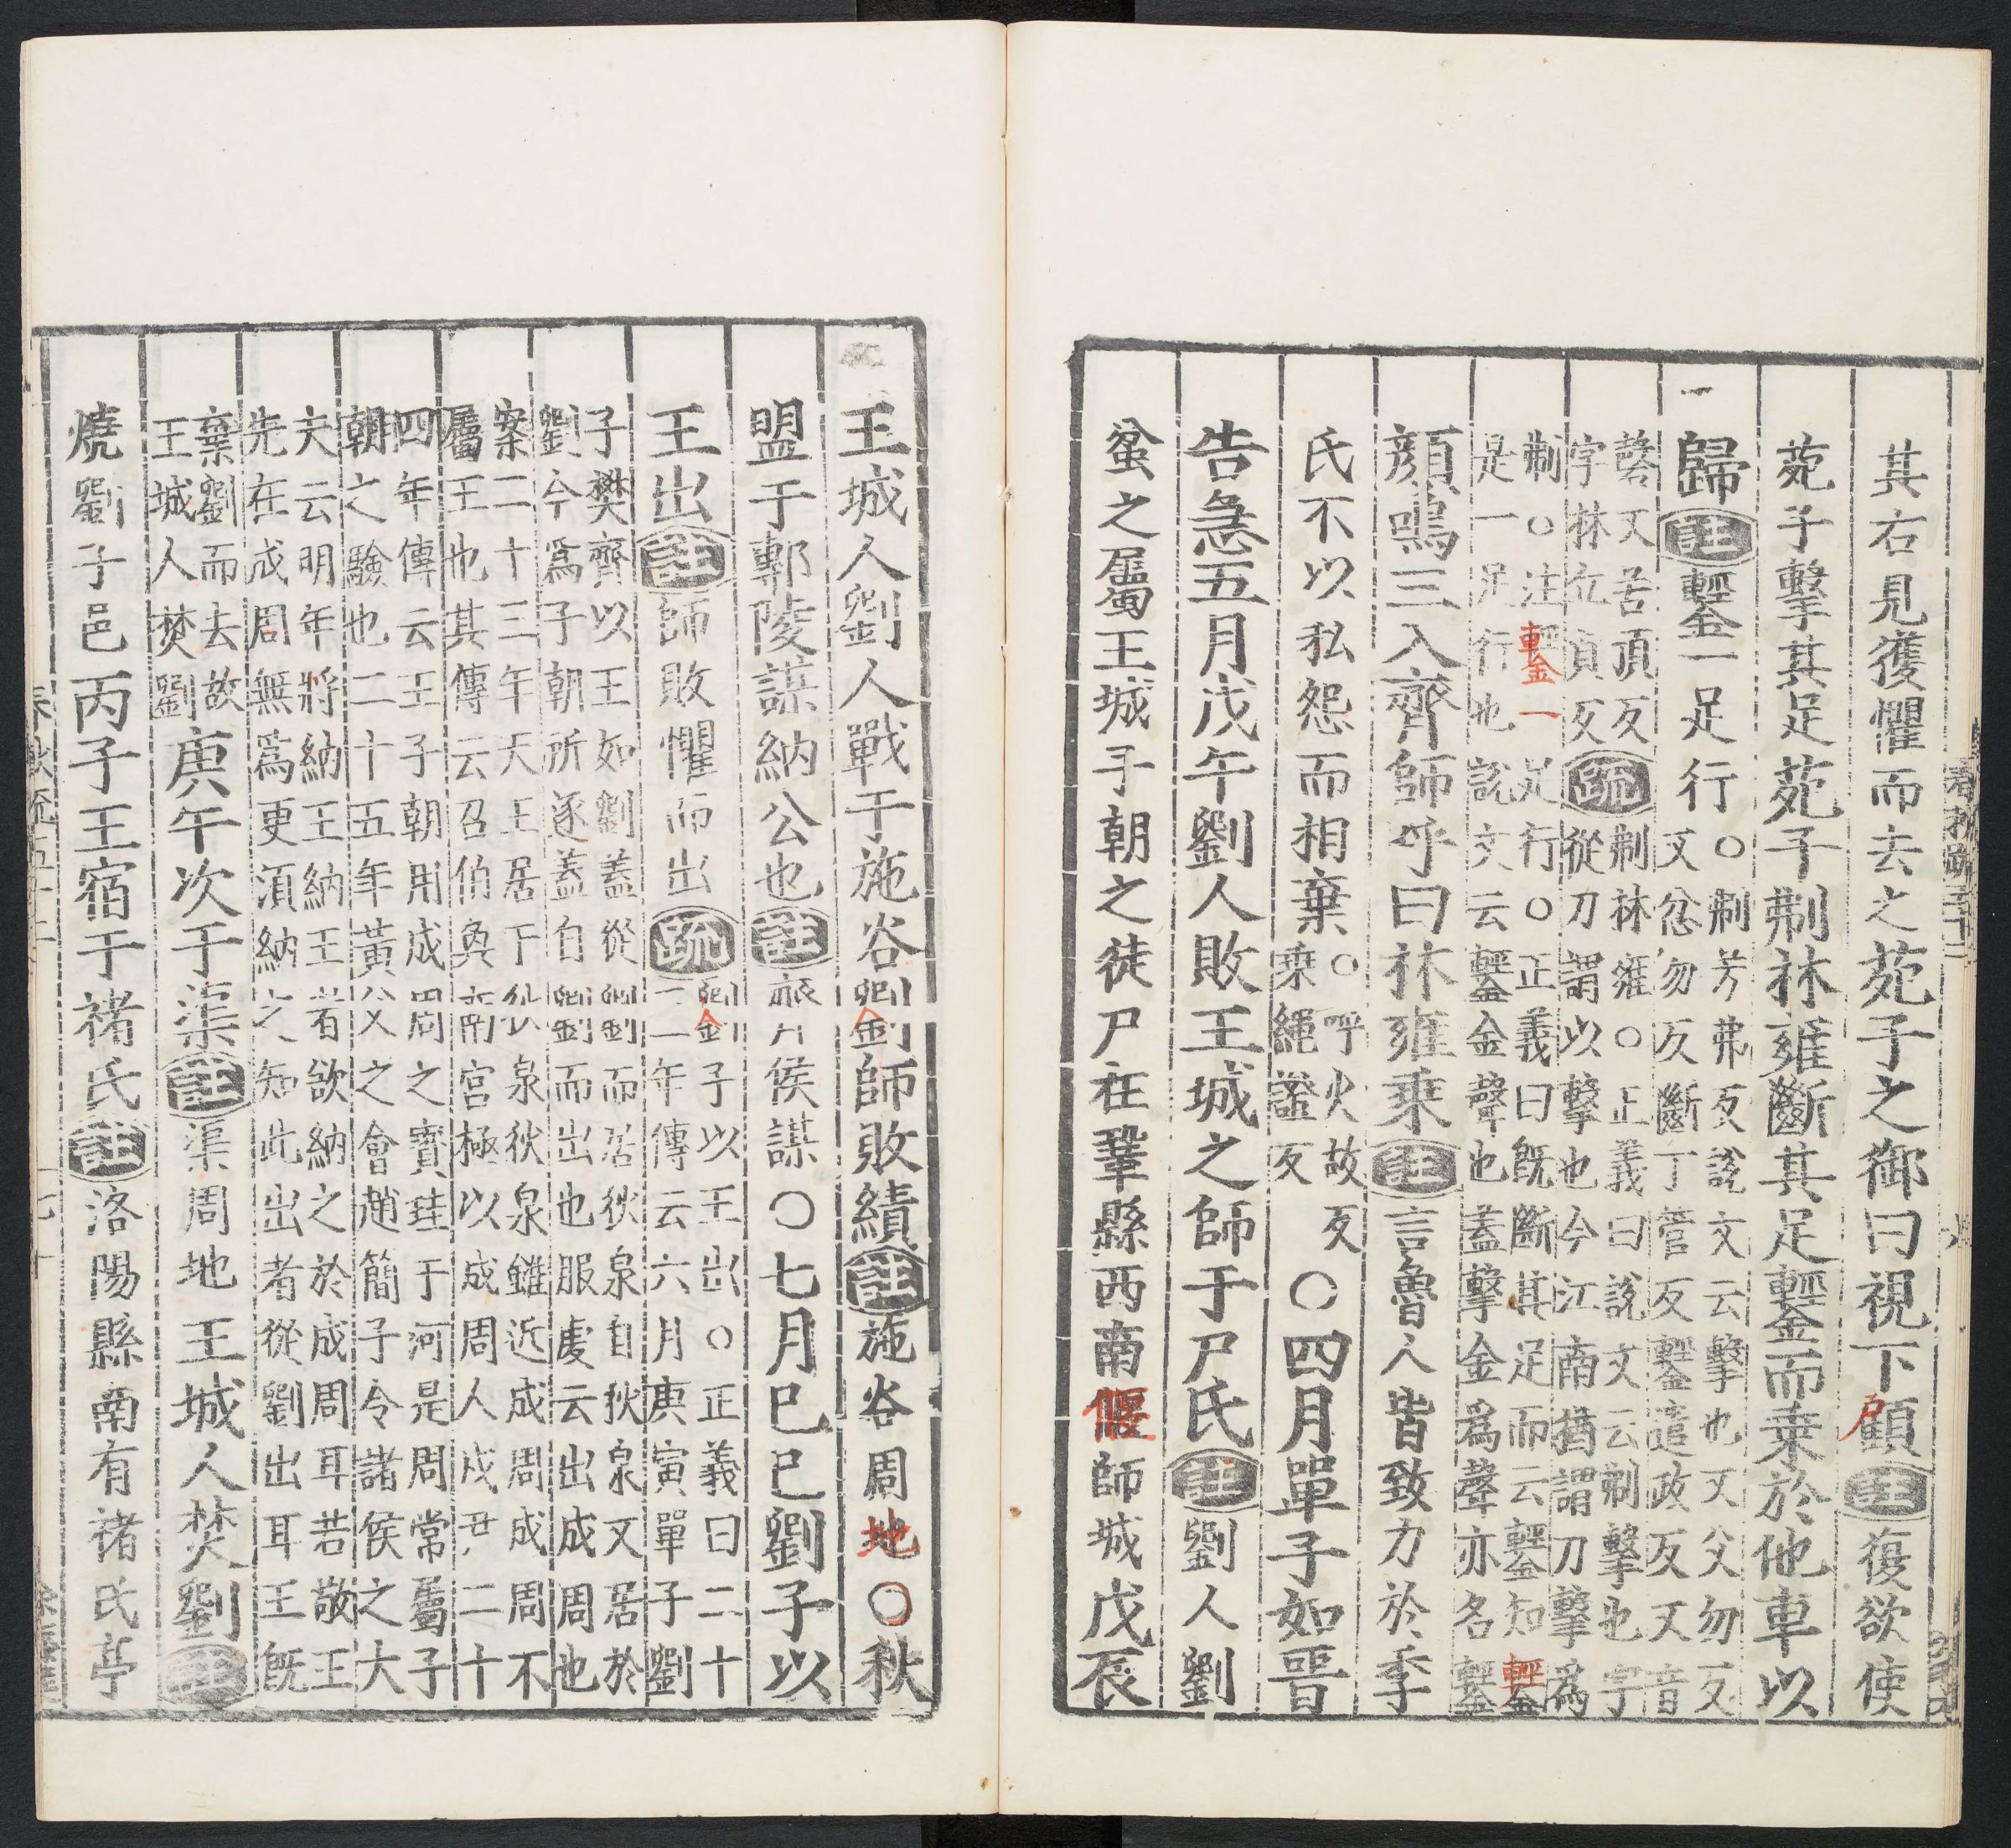 其右見獲懼而去之苑子之御曰視下顧註復欲使
苑子擊其足苑子刜林雍斷其足鑋而乗於他車以
歸註鑋一足行○刜芳弗反說文云擊也又父勿反
又忿勿反斷丁管反鑋遣政反又音
磬又苦頂反疏刜林雍○正義曰說文云刜擊也字
字林丘貞反從刀謂以擊也今江南猶謂刀擊爲
刜○注鑋一足行○正義曰旣斷其足而云鑋知鑋
是一足行也說文云鑋金聲也蓋擊金爲聲亦名鑋
顔鳴三入齊師呼曰林雍乗註言魯人皆致力於季
氏不以私怨而相棄○呼火故反
乗繩證反○四月單子如晉
告急五月戊午劉人敗王城之師于尸氏註劉人劉
蚠之屬王城子朝之徒尸在鞏縣西南偃師城戊辰
王城人劉人戰于施谷劉師敗績註施谷周地○秋
盟于鄟陵謀納公也註齊侯謀○七月己巳劉子以
王出註師敗懼而出疏劉子以王出○正義曰二十
二年傳云六月庚寅單子劉
子樊齊以王如劉蓋從劉而居狄泉自狄泉又居於
劉今爲子朝所逐蓋自劉而出也服虔云出成周也
案二十三年天王居于狄泉狄泉雖近成周成周不
屬王也其傳云召伯奐南宮極以成周人戍尹二十
四年傳云王子朝用成周之寶珪于河是周常屬子
朝之驗也二十五年黃父之會趙簡子令諸侯之大
夫云明年將納王納王者欲納之於成周耳若敬王
先在成周無爲更須納之知此出者從劉出耳王旣
棄劉而去故
王城人焚劉庚午次于渠註渠周地王城人焚劉註
燒劉子邑丙子王宿于褚氏註洛陽縣南有褚氏亭